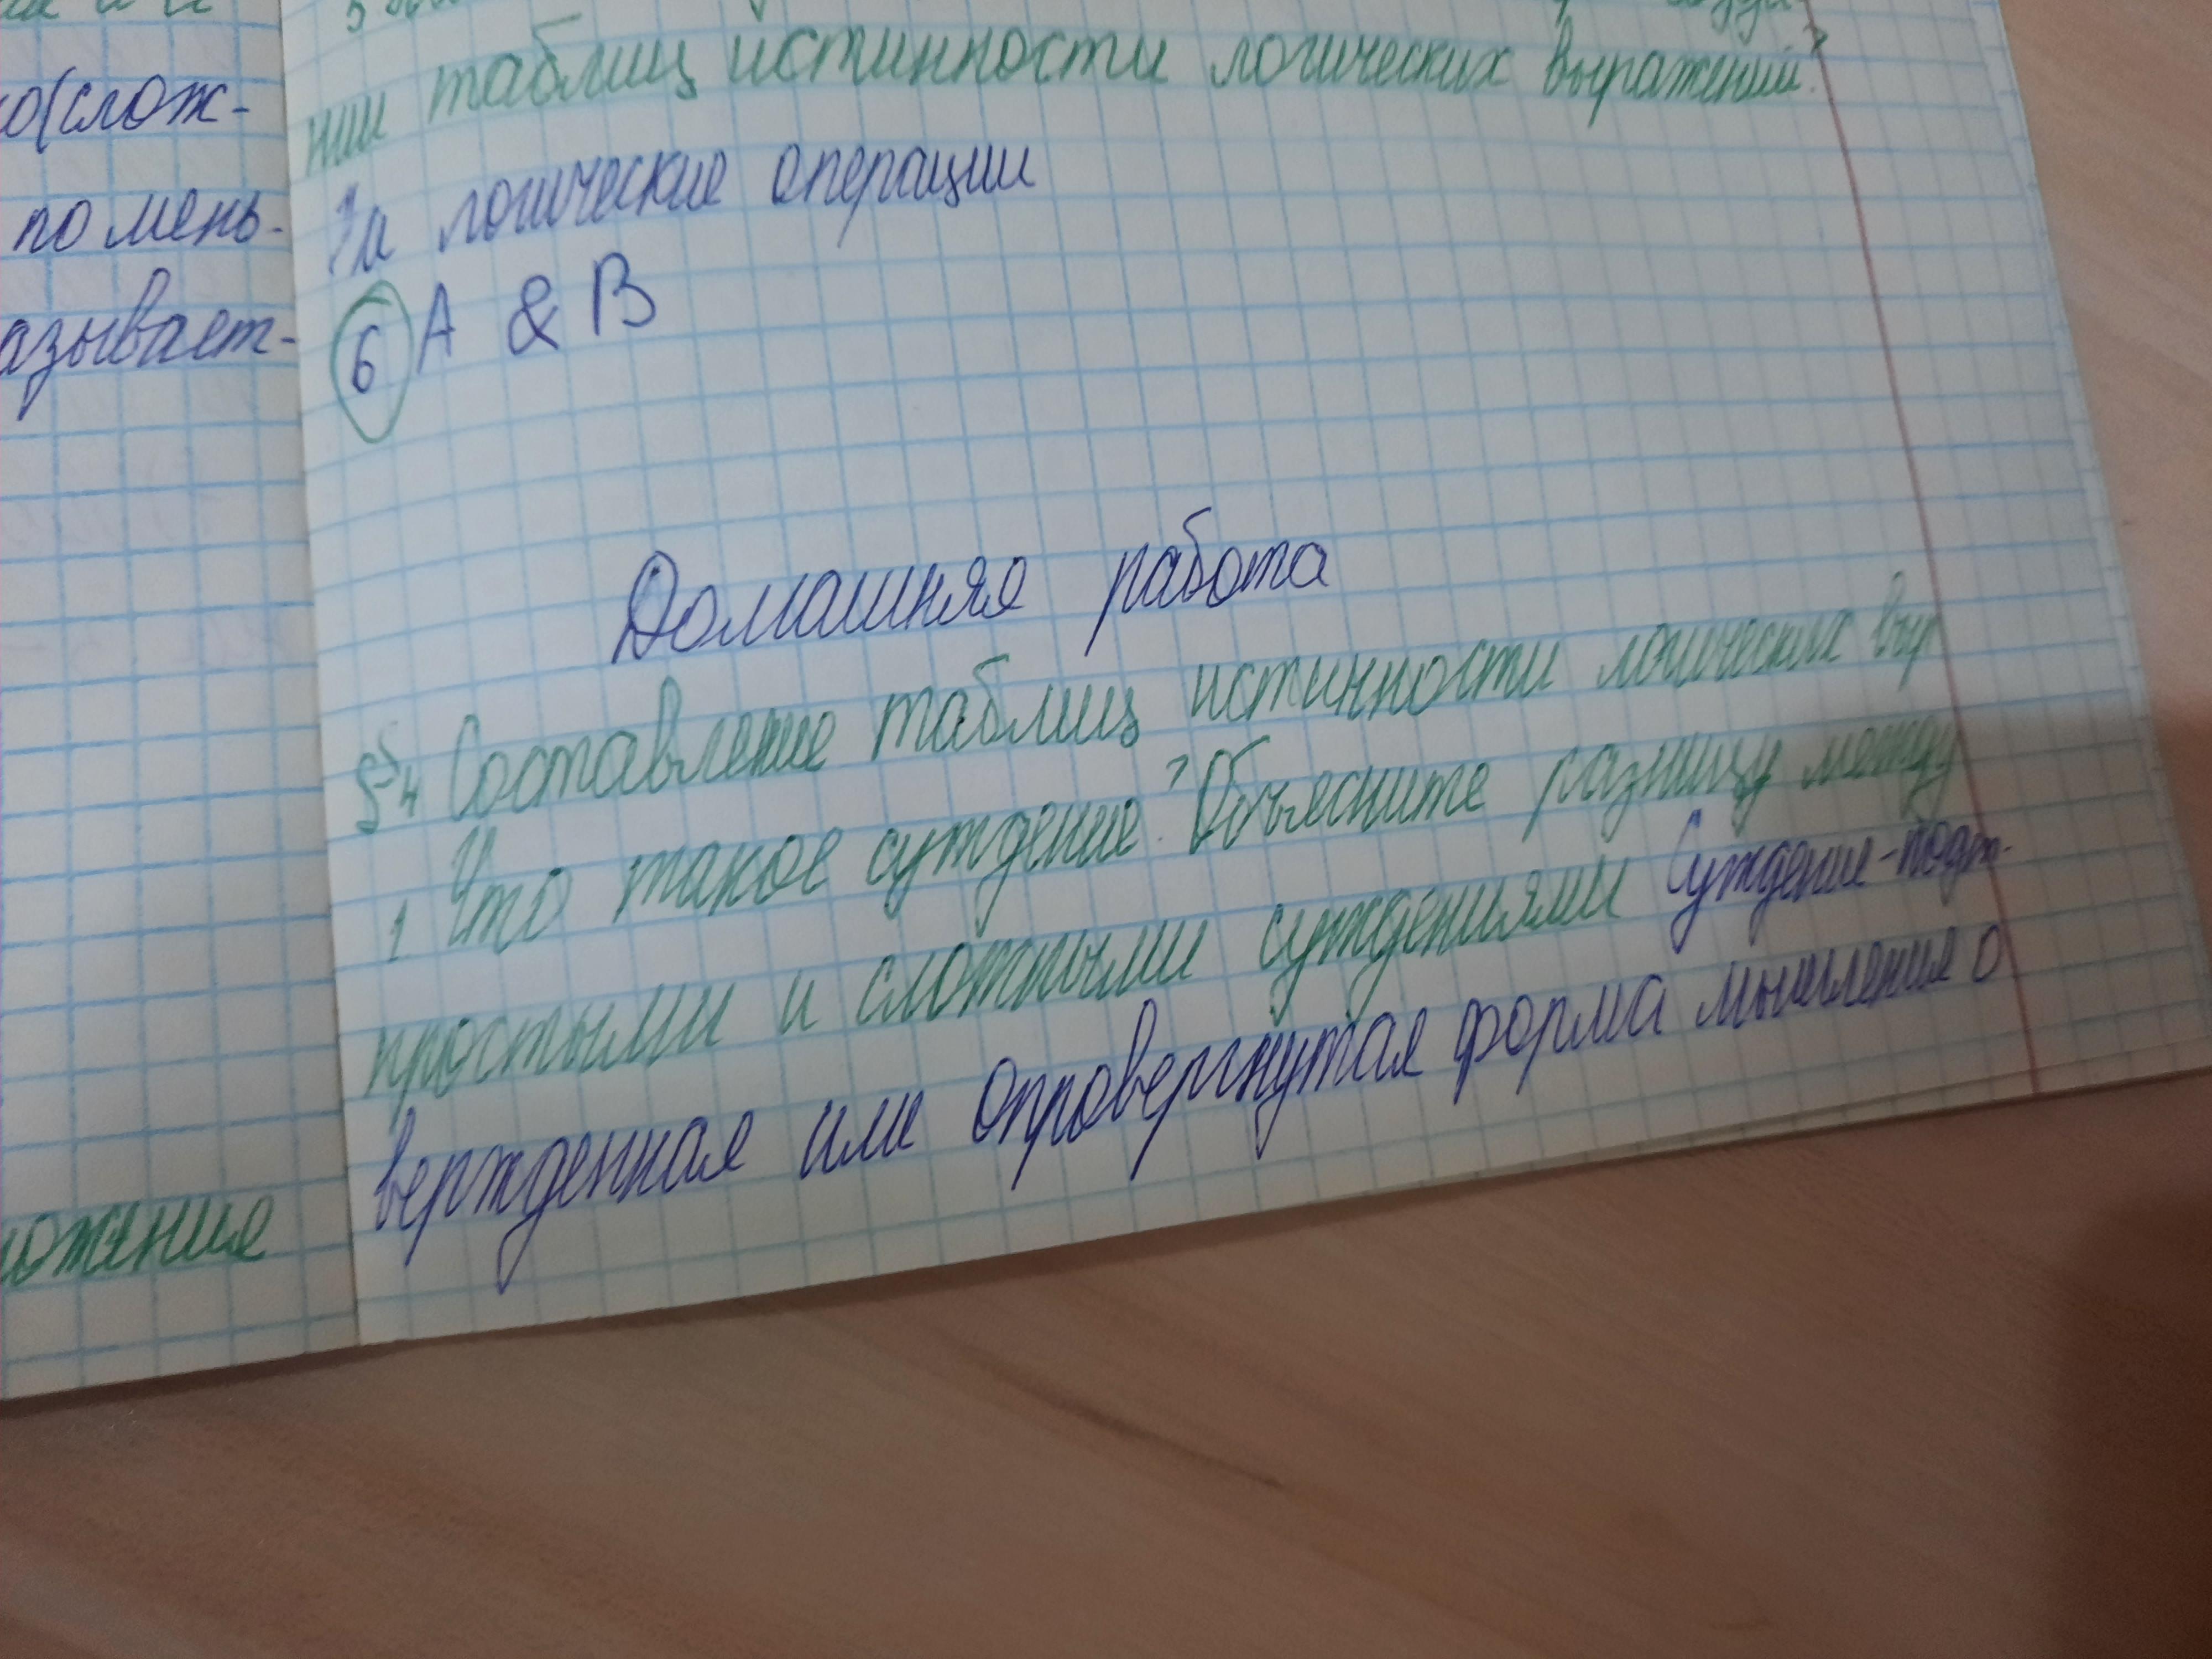 о(слож-
по мень-
азывает-
ожение
нии таблиц истинности логических выражений?
На логические операции
6 A & B
Домашняя работа
§4 Составление таблиц истинности логических выр
1 Что такое суждение? Объясните разницу между
простыми и сложными суждениями Суждение-подт-
вержденная или опровергнутая форма мышления о